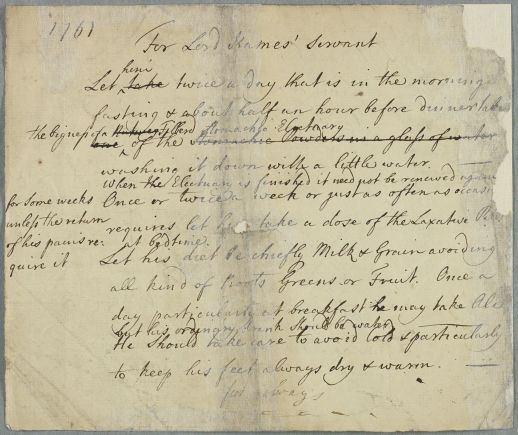 1761
For Lord Kames' Servant
Let him take twice a day that is in the morning
fasting & about half an hour before dinner take
the bigness of a Nutmeg Filberd Stomachic Electuary
one of the Stomachic Powders in a glass of water
washing it down with a little water.
When the Electuary is finished it need not be renewed again
for some weeks
unless the return
of his pains re:
quire it
Once or twice a week or just as often as occasion
requires let him take a dose of the Laxative
at bedtime.
Let his diet be chiefly Milk & Grain avoiding
all kind of Roots Greens or Fruit. Once a
day particularly at breakfast he may take Ale
but his ordinary drink should be water
He should take care to avoid cold & particularly
to keep his feet always dry & warm.